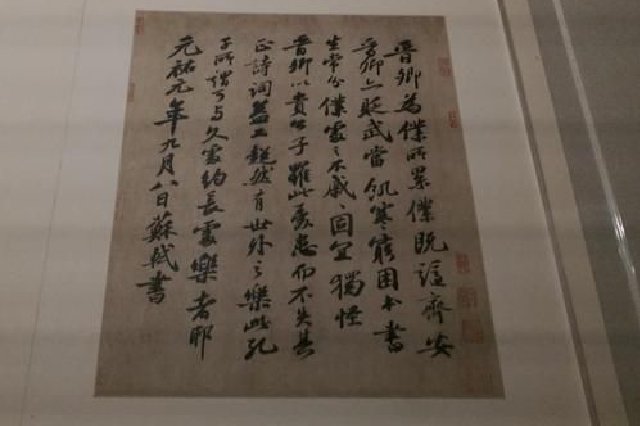 晉卿為僕所累僕既謫齊安
晉卿亦貶武當飢寒窮困本書
生常分僕處之不戚々固宜獨怪
晉卿以貴公子罹此憂患而不失其
正詩詞益工超然有世外之樂此孔
子所謂可與久處約長處樂者耶
元祐元年九月八日蘇軾書